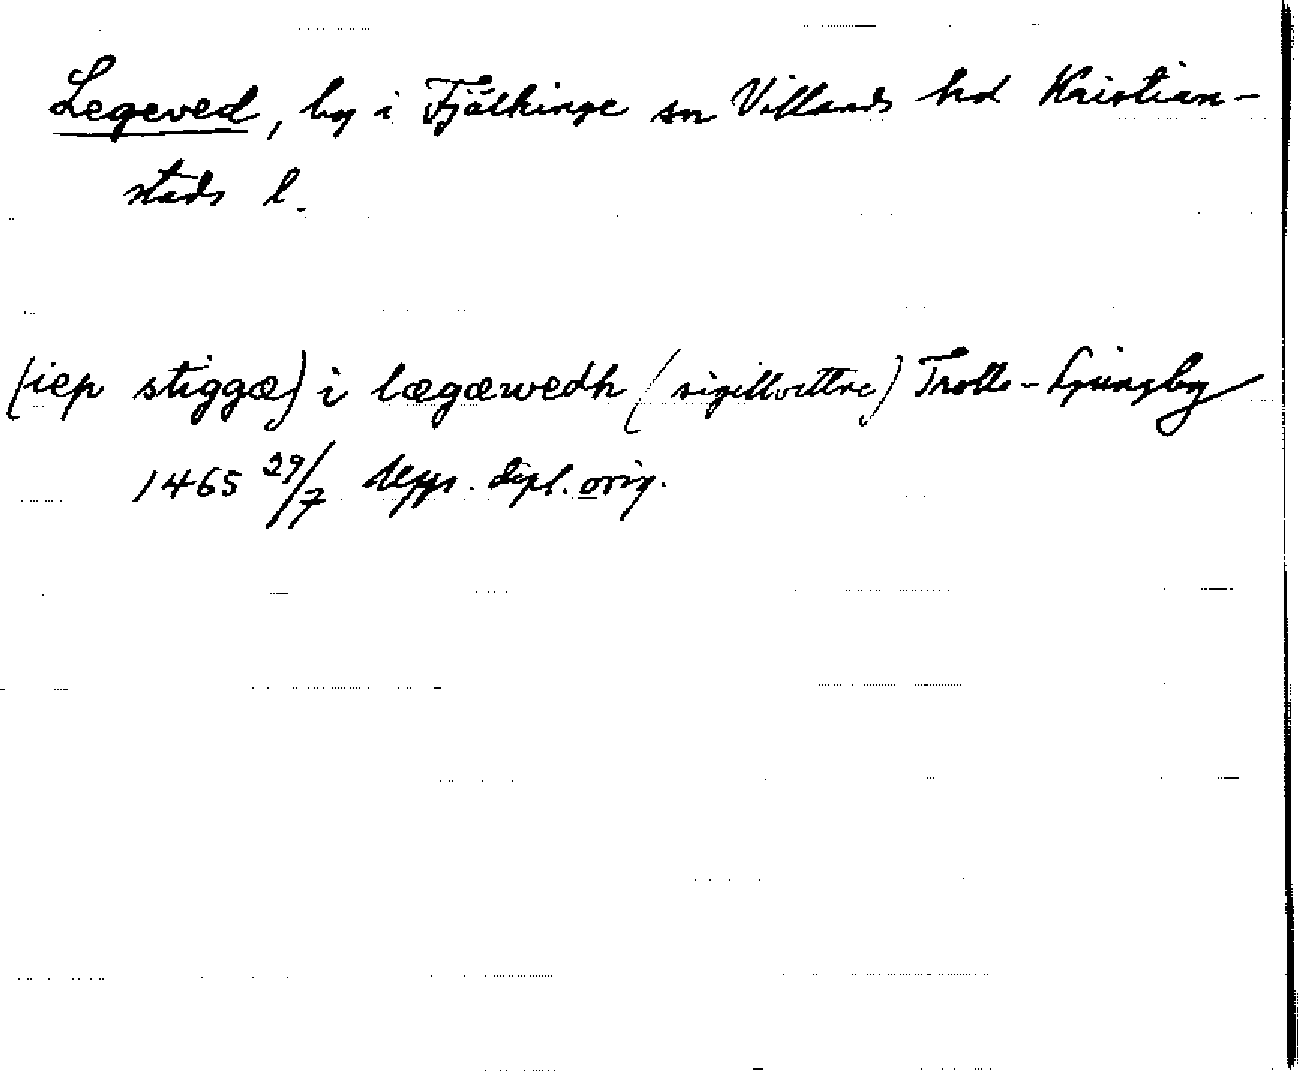 Legeved, by i Fjälkinge sn Villands hd Kristian-
stads l.
(iep stiggæ) i lægæwedh (sigillvittne) Trolle-Ljungby
1465 29/7 Upps. dipl. orig.